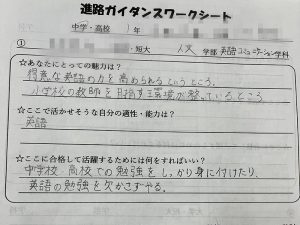 進路ガイダンスワークシート
中学・高校 1年
① ・短大 人文 学部 英語コミュニケーション学科
☆あなたにとっての魅力は?
得意な英語の力を高められるというところ、
小学校の教師を目指す環境が整っているところ
☆ここで活かせそうな自分の適性・能力は?
英語
☆ここに合格して活躍するためには何をすればいい?
中学校、高校での勉強をしっかり身に付けたり、
英語の勉強を欠かさずやる。